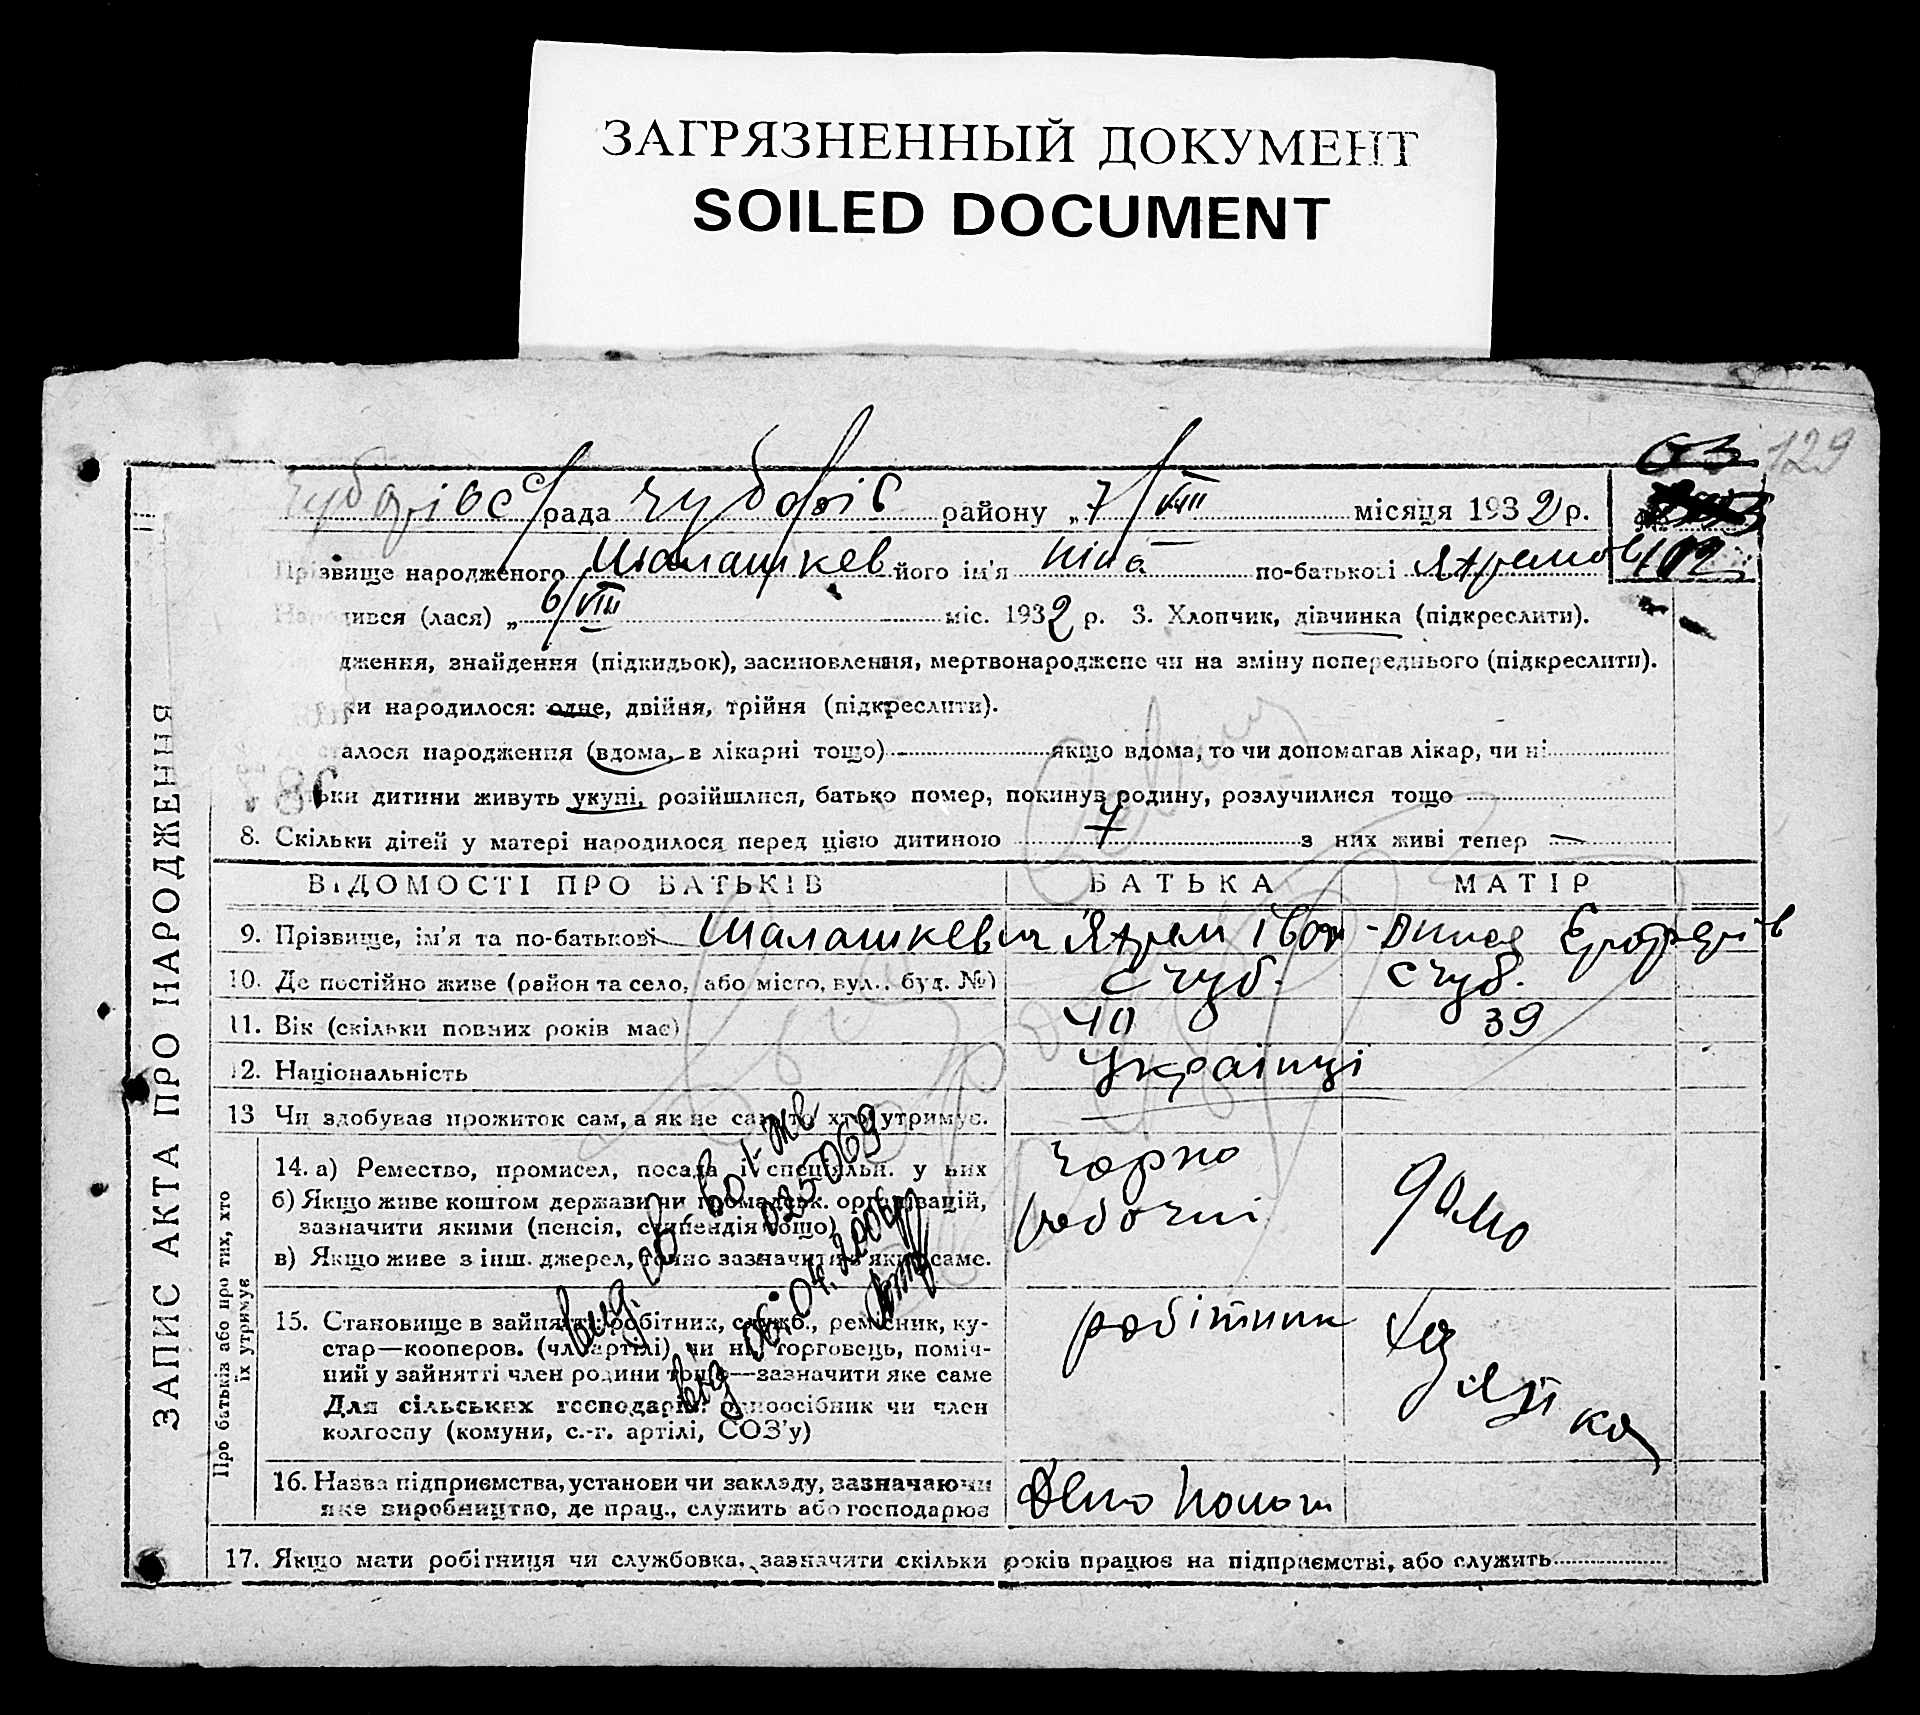 ЗАГРЯЗНЕННЫЙ ДОКУМЕНТ
SOILED DOCUMENT
129
рада район у „7/VIII місяця 1932 р.
102
Прізвище народженого Шалашкев його ім'я Ніна по-батькові
Народився (лася) „6/VIII міс. 1932 р. 3. Хлопчик, дівчинка (підкреслити).
дження, знайдення (підкидьок), засиновлення, мертвонароджене чи на зміну попереднього (підкреслити).
ки народилося: одне, двійня, трійня (підкреслити).
сталося народження (вдома, в лікарні тощо) якщо вдома, то чи допомагав лікар, чи ні
ьки дитини живуть укупі, розійшлися, батько помер, покинув родину, розлучилися тощо
8. Скільки дітей у матері народилося перед цією дитиною 7 з них живі тепер —
ЗАПИС АКТА ПРО НАРОДЖЕННЯ
ВІДОМОСТІ ПРО БАТЬКІВ БАТЬКА МАТІР
9. Прізвище, ім'я та по-батькові Шалашкев
10. Де постійно живе (район та село, або місто, вул., буд. №) с чуб. с чуб.
11. Вік (скільки повних років має) 40 39
12. Національність Українці
13 Чи здобував прожиток сам, а як не сам, то хто утримує.
Про батьків або про тих, хто їх утримує
14. а) Ремество, промисел, посада і спеціяльн. у них чорно робочий
б) Якщо живе коштом держави чи громадськ. організацій,
зазначити якими (пенсія, стипендія тощо)
в) Якщо живе з інш. джерел, точно зазначити з яких саме.
15. Становище в зайнятті: робітник, служб., ремісник, ку-
стар—кооперов. (чл. артілі) чи ні, торговець, поміч-
ний у зайнятті член родини тощо—зазначити яке саме
Для сільських господарів: одноосібник чи член
колгоспу (комуни, с.-г. артілі, СОЗ'у)
робітник
16. Назва підприємства, установи чи закладу, зазначаючи
яке виробництво, де прац., служить або господарює
17. Якщо мати робітниця чи службовка, зазначити скільки років працює на підприємстві, або служить
вид. св. во I-ЖВ
025069
від 06.04.2006р